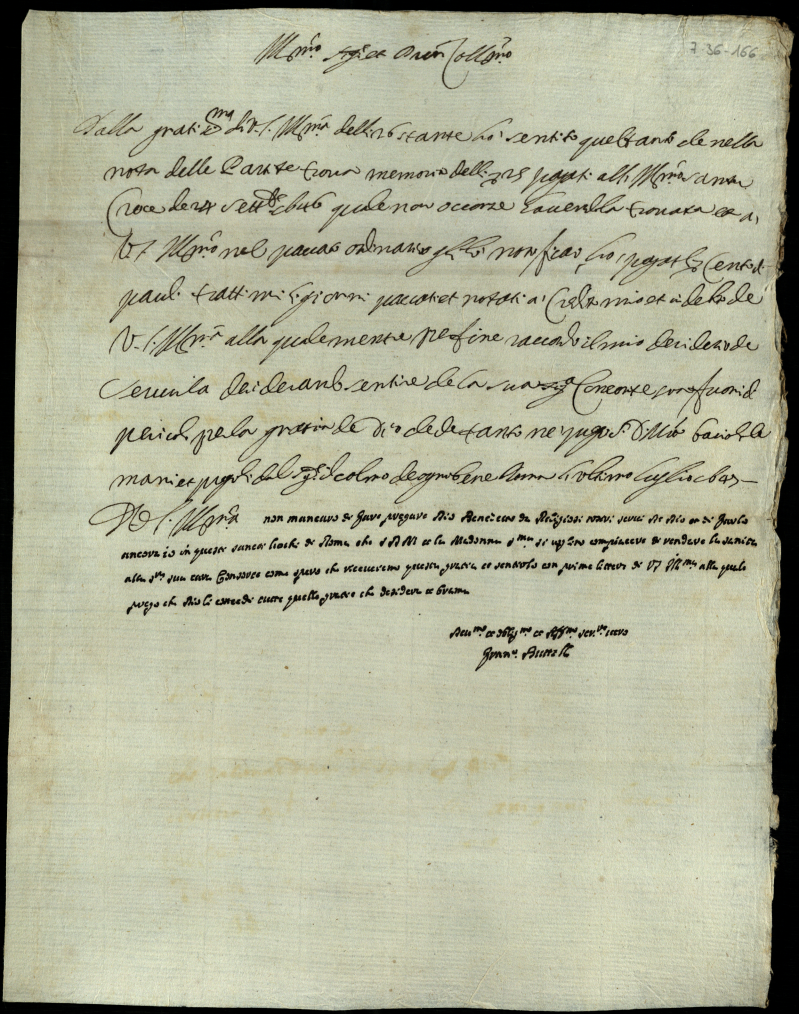 Ill.mo Sig.r et Pad.n Coll.mo
7-36-166
Dalla gratis.ma di V.S. Ill.ma delli 26 stante ho sentito quel tanto che nella
nota delle Partite trova memoria delli pagati alli Ill.mi Santa
Croce de 24 Settbre 1646 quale non occorre haverella trovata et a
V.S. Ill.ma nel passato ordinario gli notificai ho pagati Cento di
pauli tratti mi li giorni passati et notati a Credito mio et a debito de
V.S. Ill.ma alla quale mentre per fine raccordo il mio desiderio de
servirla desiderando sentire che la sua Consorte sia fuori di
pericolo per la gratia de Dio che de tanto ne prego S. D. M. bacio le
mani et prego dal Sig.r il colmo de ogni bene Roma li ultimo luglio 1647
De V.S. Ill.ma non mancaro di fare pregare Dio Benedetto da Religiosi servi de Dio et di farlo
ancora io in questi santi lochi di Roma che S.D.M. et la Madonna S.ma si voglino compiacere di rendere la sanita
alla S.ra sua cara Consorte come spero che riceveremo questa gratia et sentirolo con prime lettere di V.S. Ill.ma alla quale
prego che Dio li concedi tutte quelle gratie che desidera et brama
Deu.mo et oblig.mo et Aff.mo ser.re vero
Fran.o